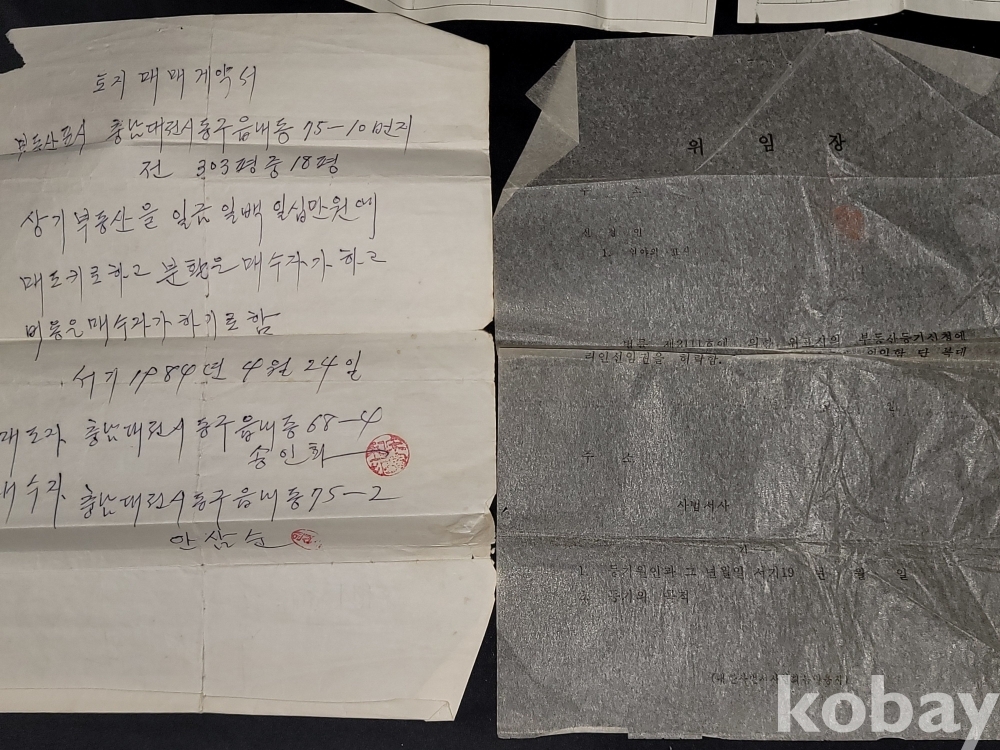 토지 매매계약서
부동산표시 충남대전시동구읍내동 75-10번지
전 303평중 18평
상기 부동산을 일금 일백 일십만원에
매도키로하고 분할은 매수자가 하고
비용은 매수자가 하기로 함
서기 1984년 4월 24일
매도자 충남대전시 동구읍내동 68-4
송인화
매수자 충남대전시동구읍내동 75-2
안삼순
위 임 장
주 소
신청인
1.
법률 제2111호에 의한 부동산등기신청에
주 소
사법서사
1. 등기원인과 그 년월일 서기19 년 월 일
등기의 목적
kobay